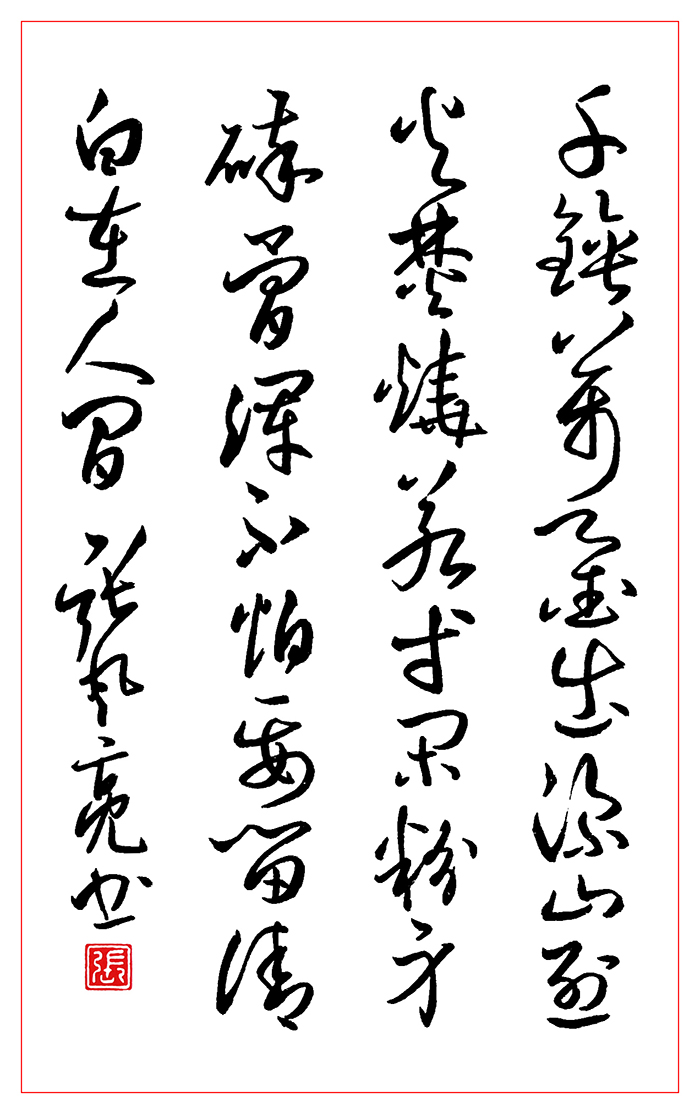 千錘萬鑿出深山烈
火焚燒若等閑粉身
碎骨渾不怕要留清
白在人間 張亮书
張